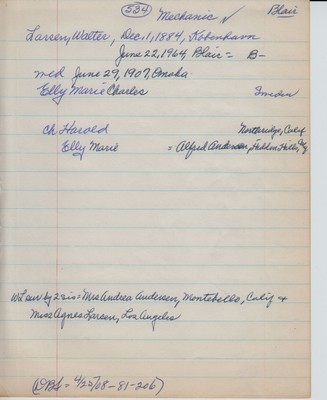 534 Mechanic ✓ Blair
Larsen, Walter, Dec. 1, 1884, Kobenhavn
June 22, 1964, Blair = B-
med June 29, 1907, Omaha
Elly Marie Charles Sweden
ch Harold Northridge, Calif
Elly Marie = Alfred Andersen, Hidden Hills,
WL surv by 2 sis = Mrs Andrea Andersen, Montebello, Calif +
Miss Agnes Larsen, Los Angeles
(DBS = 4/25/08-81-206)